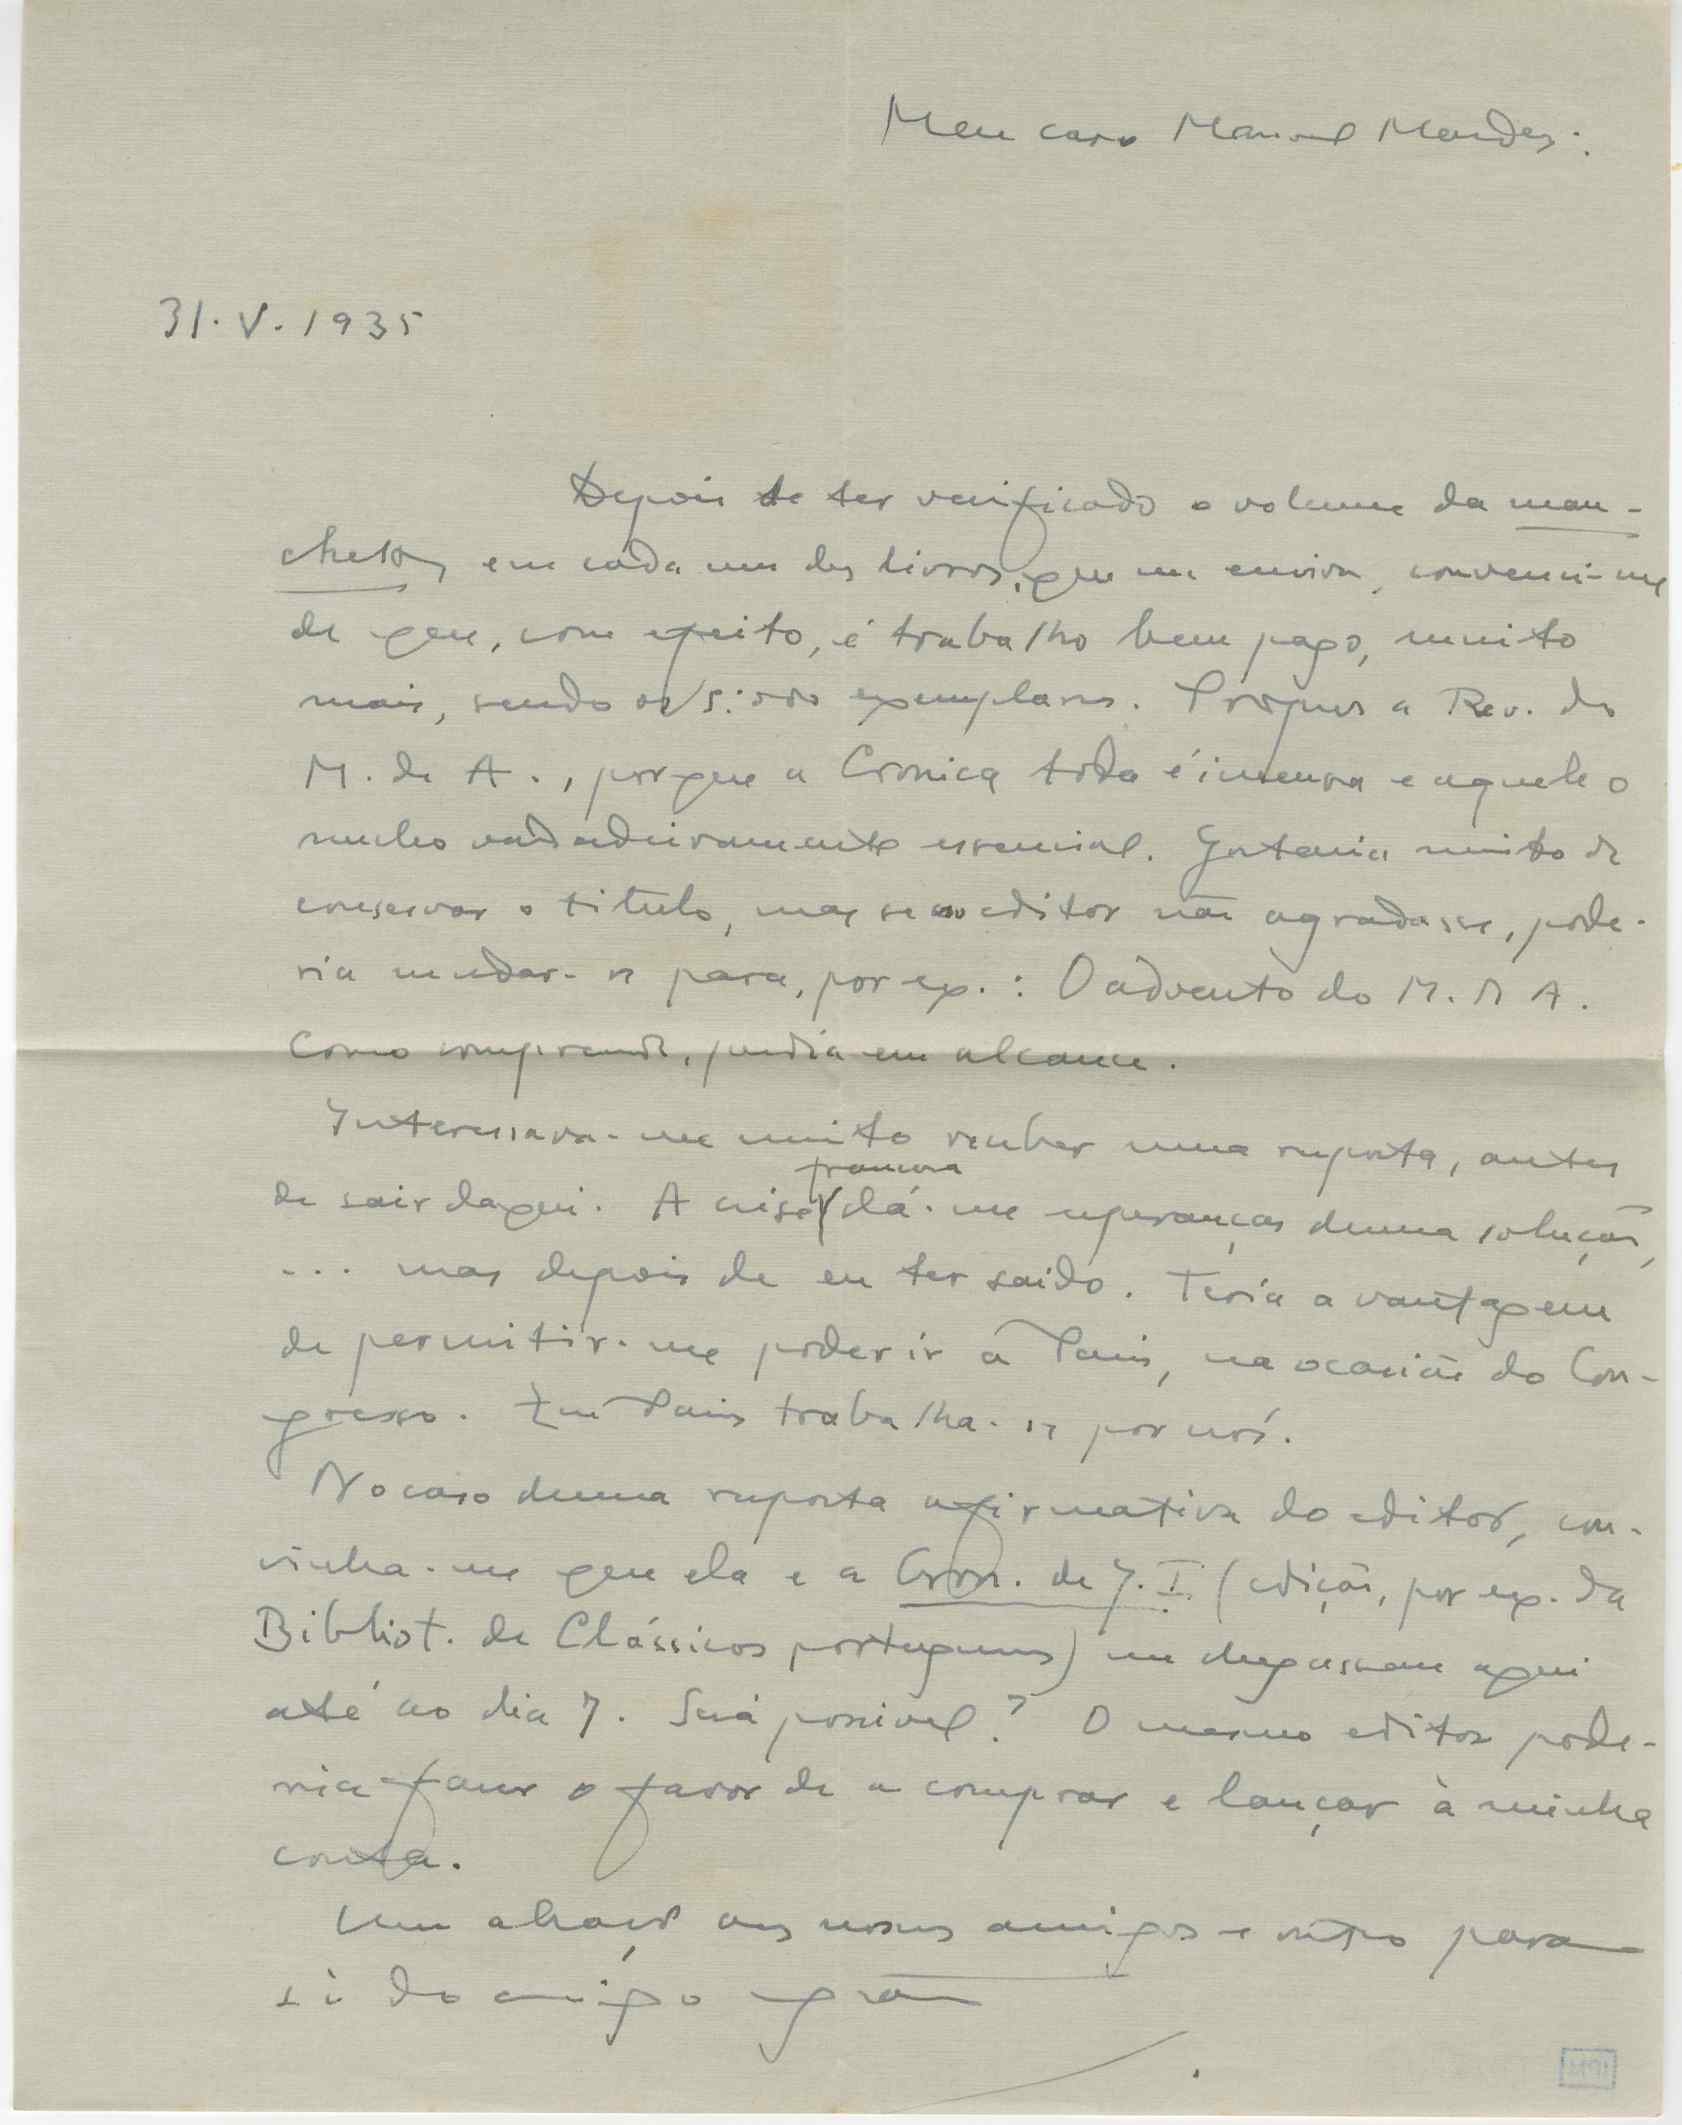 Meu caro Manuel Mendes:
31.V.1935
Depois de ter verificado o volume da man-
chette, em cada um dos livros, que me enviou, convenci-me
de que, com efeito, é trabalho bem pago, muito
mais, sendo os 5:000 exemplares. Propus a Rev. do
M. de A., porque a Cronica toda é imensa e aquele o
nucleo verdadeiramente essencial. Gostaria muito de
conservar o titulo, mas se ao editor não agradasse, pode-
ria mudar-se para, por ex.: O advento do M. D A.
Como compreende, perdia em alcance.
Interessava-me muito receber uma resposta, antes
de sair daqui. A crise francesa dá-me esperanças duma solução,
... mas depois de eu ter saido. Teria a vantagem
de permitir-me poder ir a Paris, na ocasião do Con-
gresso. Em Paris trabalha-se por nós.
No caso duma resposta afirmativa do editor, con-
vinha-me que ela e a Cron. de J. I (edição, por ex. da
Bibliot. de Clássicos portugueses) me chegassem aqui
até ao dia 7. Será possivel? O mesmo editor pode-
ria fazer o favor de a comprar e lançar à minha
conta.
Um abraço aos nossos amigos e outro para
si do amigo grato